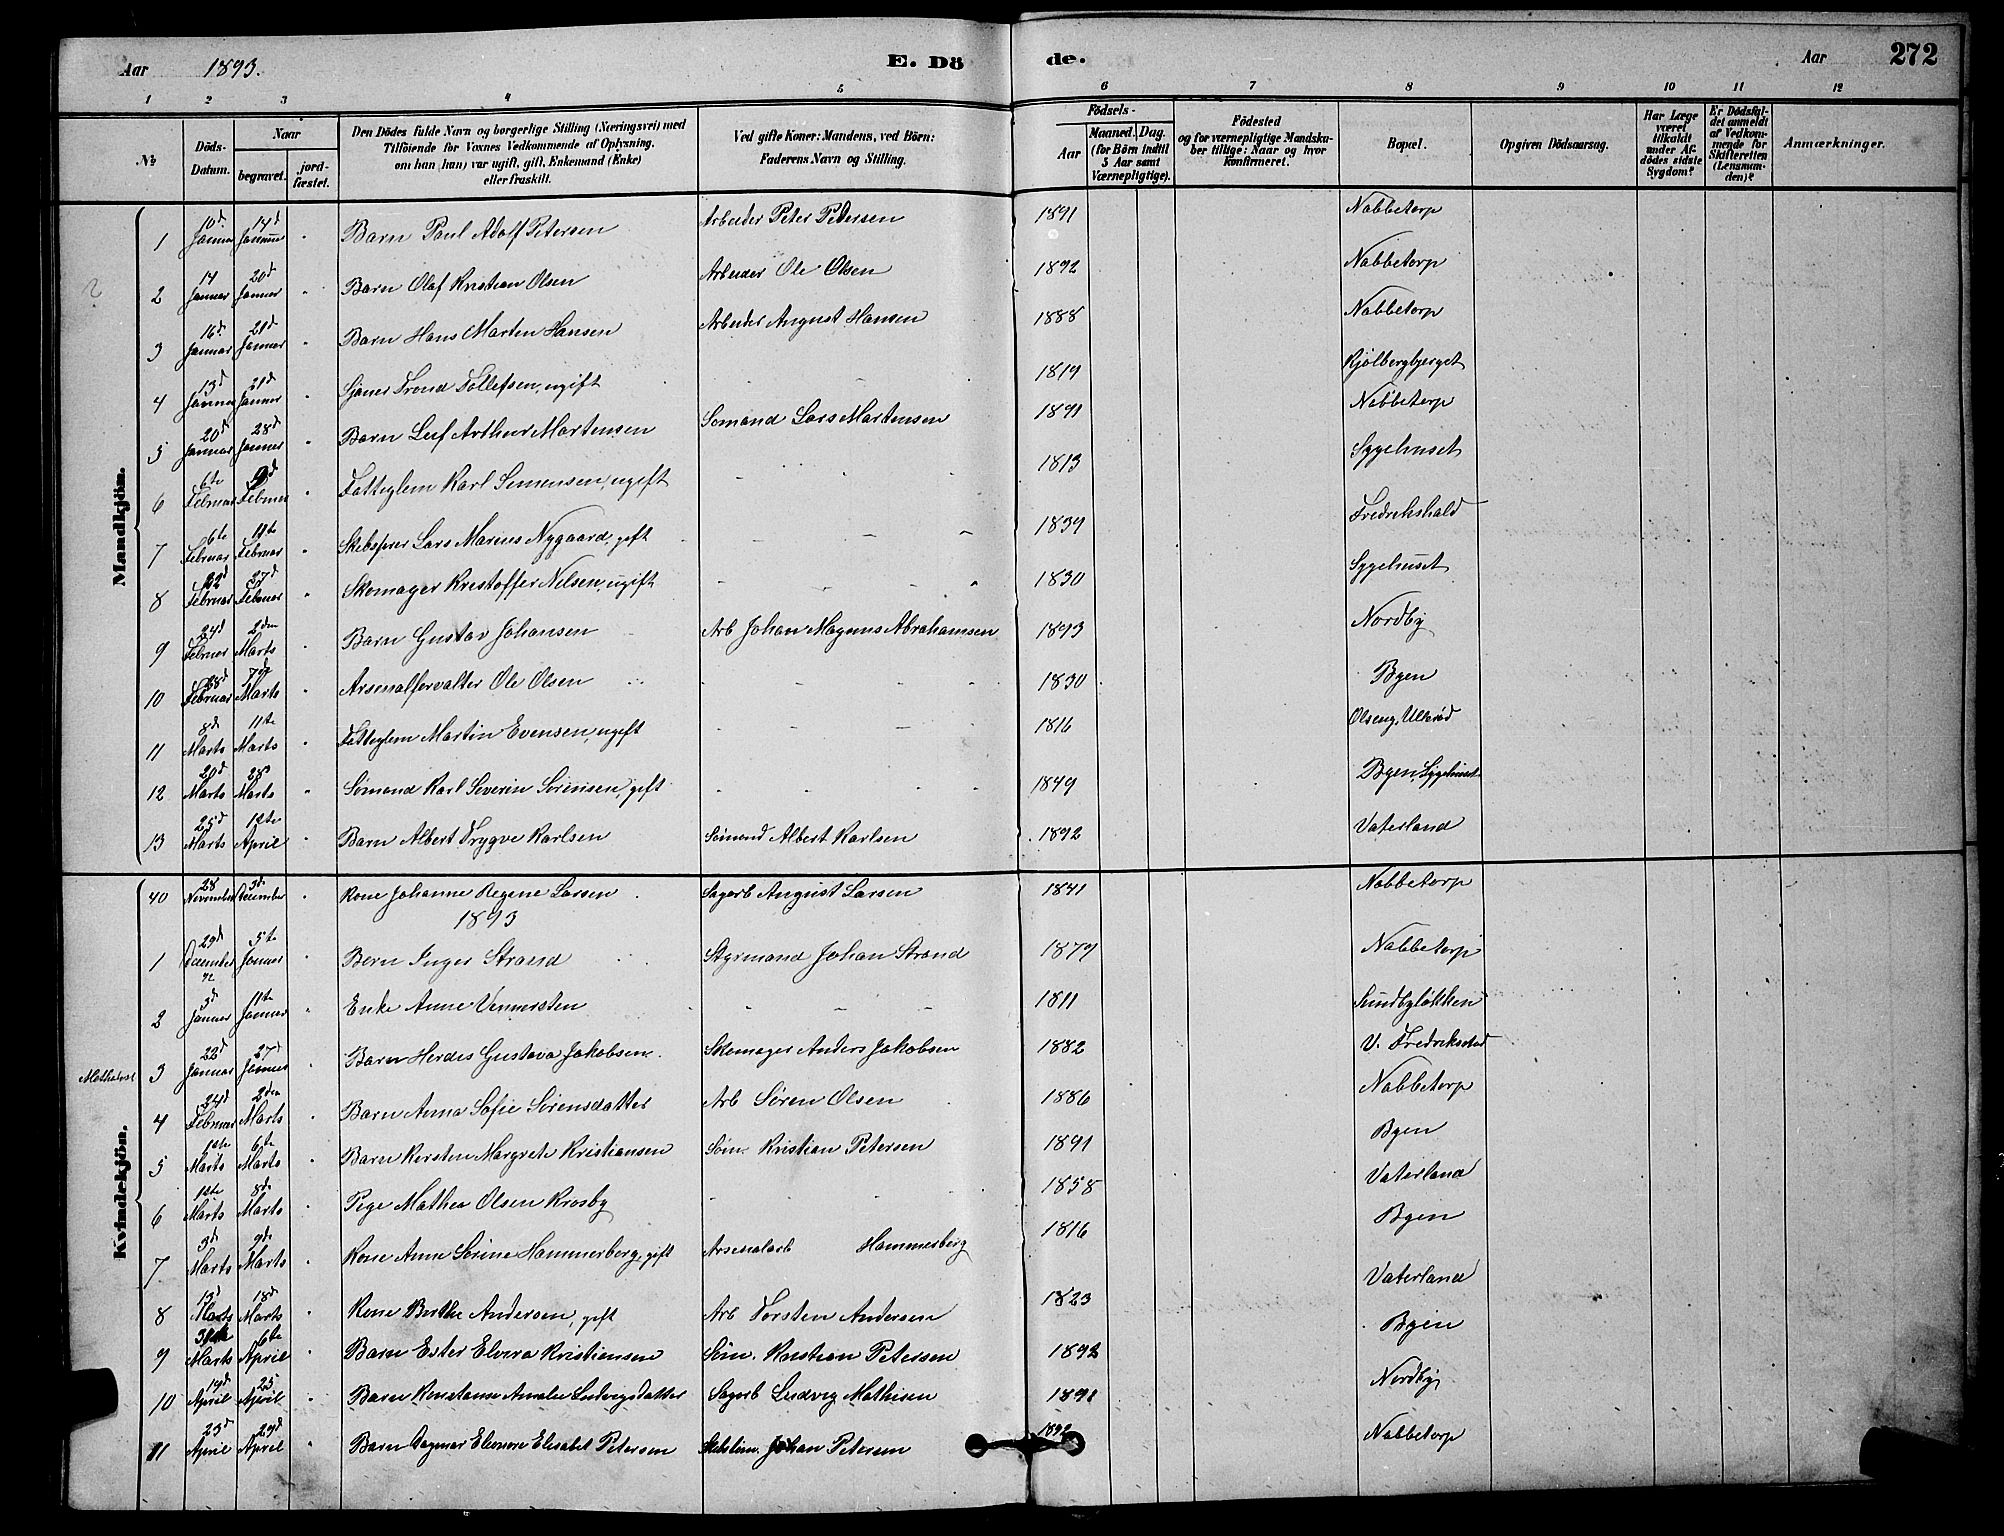 Aar 1893. E. Dö de. Aar 272
1 2 3 4 5 6 7 8 9 10 11 12
№
Döds-Datum.
Naar
begravet.
jord-fæstet.
Den Dödes fulde Navn og borgerlige Stilling (Næringsvei) med Tilföiende for Voxnes Vedkommende af Oplysning, om han (hun) var ugift, gift, Enkemand (Enke) eller fraskilt.
Ved gifte Koner: Mandens, ved Börn: Faderens Navn og Stilling.
Födsels-
Aar
Maaned. Dag.
(for Börn indtil 5 Aar samt Værnepligtige).
Födested og for værnepligtige Mandskaber tillige: Naar og hvor konfirmeret.
Bopæl.
Opgiven Dödsaarsag.
Har Læge været tilkaldt under Afdödes sidste Sygdom?
Er Dödsfaldet anmeldt af Vedkommende for Skifteretten (Lensmanden)?
Anmærkninger.
Mandkjön.
1 10d Januar 14d Januar " Barn Paul Adolf Petersen Arbeider Peter Pedersen 1891 Nabbetorp
2 14 Januar 20d Januar " Barn Olaf Kristian Olsen Arbeider Ole Olsen 1892 Nabbetorp
3 16d Januar 21d Januar " Barn Hans Marten Hansen Arbeider August Hansen 1888 Nabbetorp
4 13d Januar 21d Januar " Trond Tollefsen, ugift 1819 Kjølbergbjerget
5 20d Januar 28d Januar " Barn Leif Arthur Martensen Sømand Lars Martensen 1891 Nabbetorp
6 6te Februar 9d Februar " Fattiglem Karl Simensen, ugift 1813 Sygehuset
7 6te Februar 11te Februar " Lars Marius Nygaard, gift 1839 Fredrikshald
8 22d Februar 27d Februar " Skomager Kristoffer Nilsen, ugift 1830 Sygehuset
9 24d Februar 2den Marts Barn Gustav Johansen Arb Johan Magnus Abrahamsen 1893 Nordby
10 28d Februar 7d Marts " Arsenalforvalter Ole Olsen 1830 Byen
11 8d Marts 11te Marts " Fattiglem Martin Evensen, ugift 1816 Olseng, Ullerød
12 20d Marts 28d Marts " Sømand Karl Severin Sørensen, gift 1849 Byen, Sygehuset
13 25d Marts 12te April " Barn Albert Trygve Karlsen Sømand Albert Karlsen 1892 Vaterland
Kvindekjön.
40 28 November 3d December " Kone Johanne Regine Larsen Sagarb August Larsen 1841 Nabbetorp
1893
1 29d December 92 5te Januar " Barn Inger Strand Styrmand Johan Strand 1879 Nabbetorp
2 3d Januar 11te Januar " Enke Anne Vennersten 1811 Sundbyløkken
3 22d Januar 27d Januar " Barn Herdis Gustava Jakobsen Skomager Anders Jakobsen 1882 V. Fredrikstad
4 24d Februar 2den Marts " Barn Anna Sofie Sørensdatter Arb Søren Olsen 1886 Nabbetorp
5 1ste Marts 6te Marts " Barn Kirsten Margrete Kristiansen Søm. Kristian Petersen 1891 Byen
6 1ste Marts 8d Marts " Pige Mathea Olsen Krosby 1858 Vaterland
7 3d Marts 9de Marts " Kone Anne Sørine Hammerberg, gift Arsenalarb Hammerberg 1816 Byen
8 13d Marts 18d Marts " Kone Berthe Andersen, gift Arb Torsten Andersen 1823 Vaterland
9 31te Marts 6te April " Barn Ester Elvira Kristiansen Søm. Kristian Petersen 1892 Byen
10 19d April 25 April " Barn Konstanse Amalie Ludvigsdatter Sagarb Ludvig Mathisen 1891 Nordby
11 23d April 29d April " Barn Dagmar Eleonore Elisabet Petersen Johan Petersen 1892 Nabbetorp